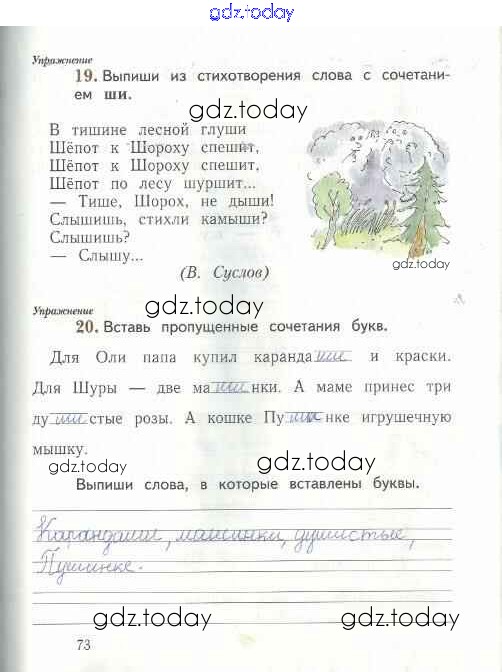 gdz.today
Упражнение
19. Выпиши из стихотворения слова с сочетани-
ем ши.
gdz.today
В тишине лесной глуши
Шёпот к Шороху спешит,
Шёпот к Шороху спешит,
Шёпот по лесу шуршит...
— Тише, Шорох, не дыши!
Слышишь, стихли камыши?
Слышишь?
— Слышу...
gdz.today
(В. Суслов)
Упражнение
gdz.today
20. Вставь пропущенные сочетания букв.
Для Оли папа купил каранда ши и краски.
Для Шуры — две ма ши нки. А маме принес три
ду ши стые розы. А кошке Пу ши нке игрушечную
мышку.
gdz.today
gdz.today
Выпиши слова, в которые вставлены буквы.
Карандаши, машинки, душистые,
Пушинке.
gdz.today
gdz.today
73